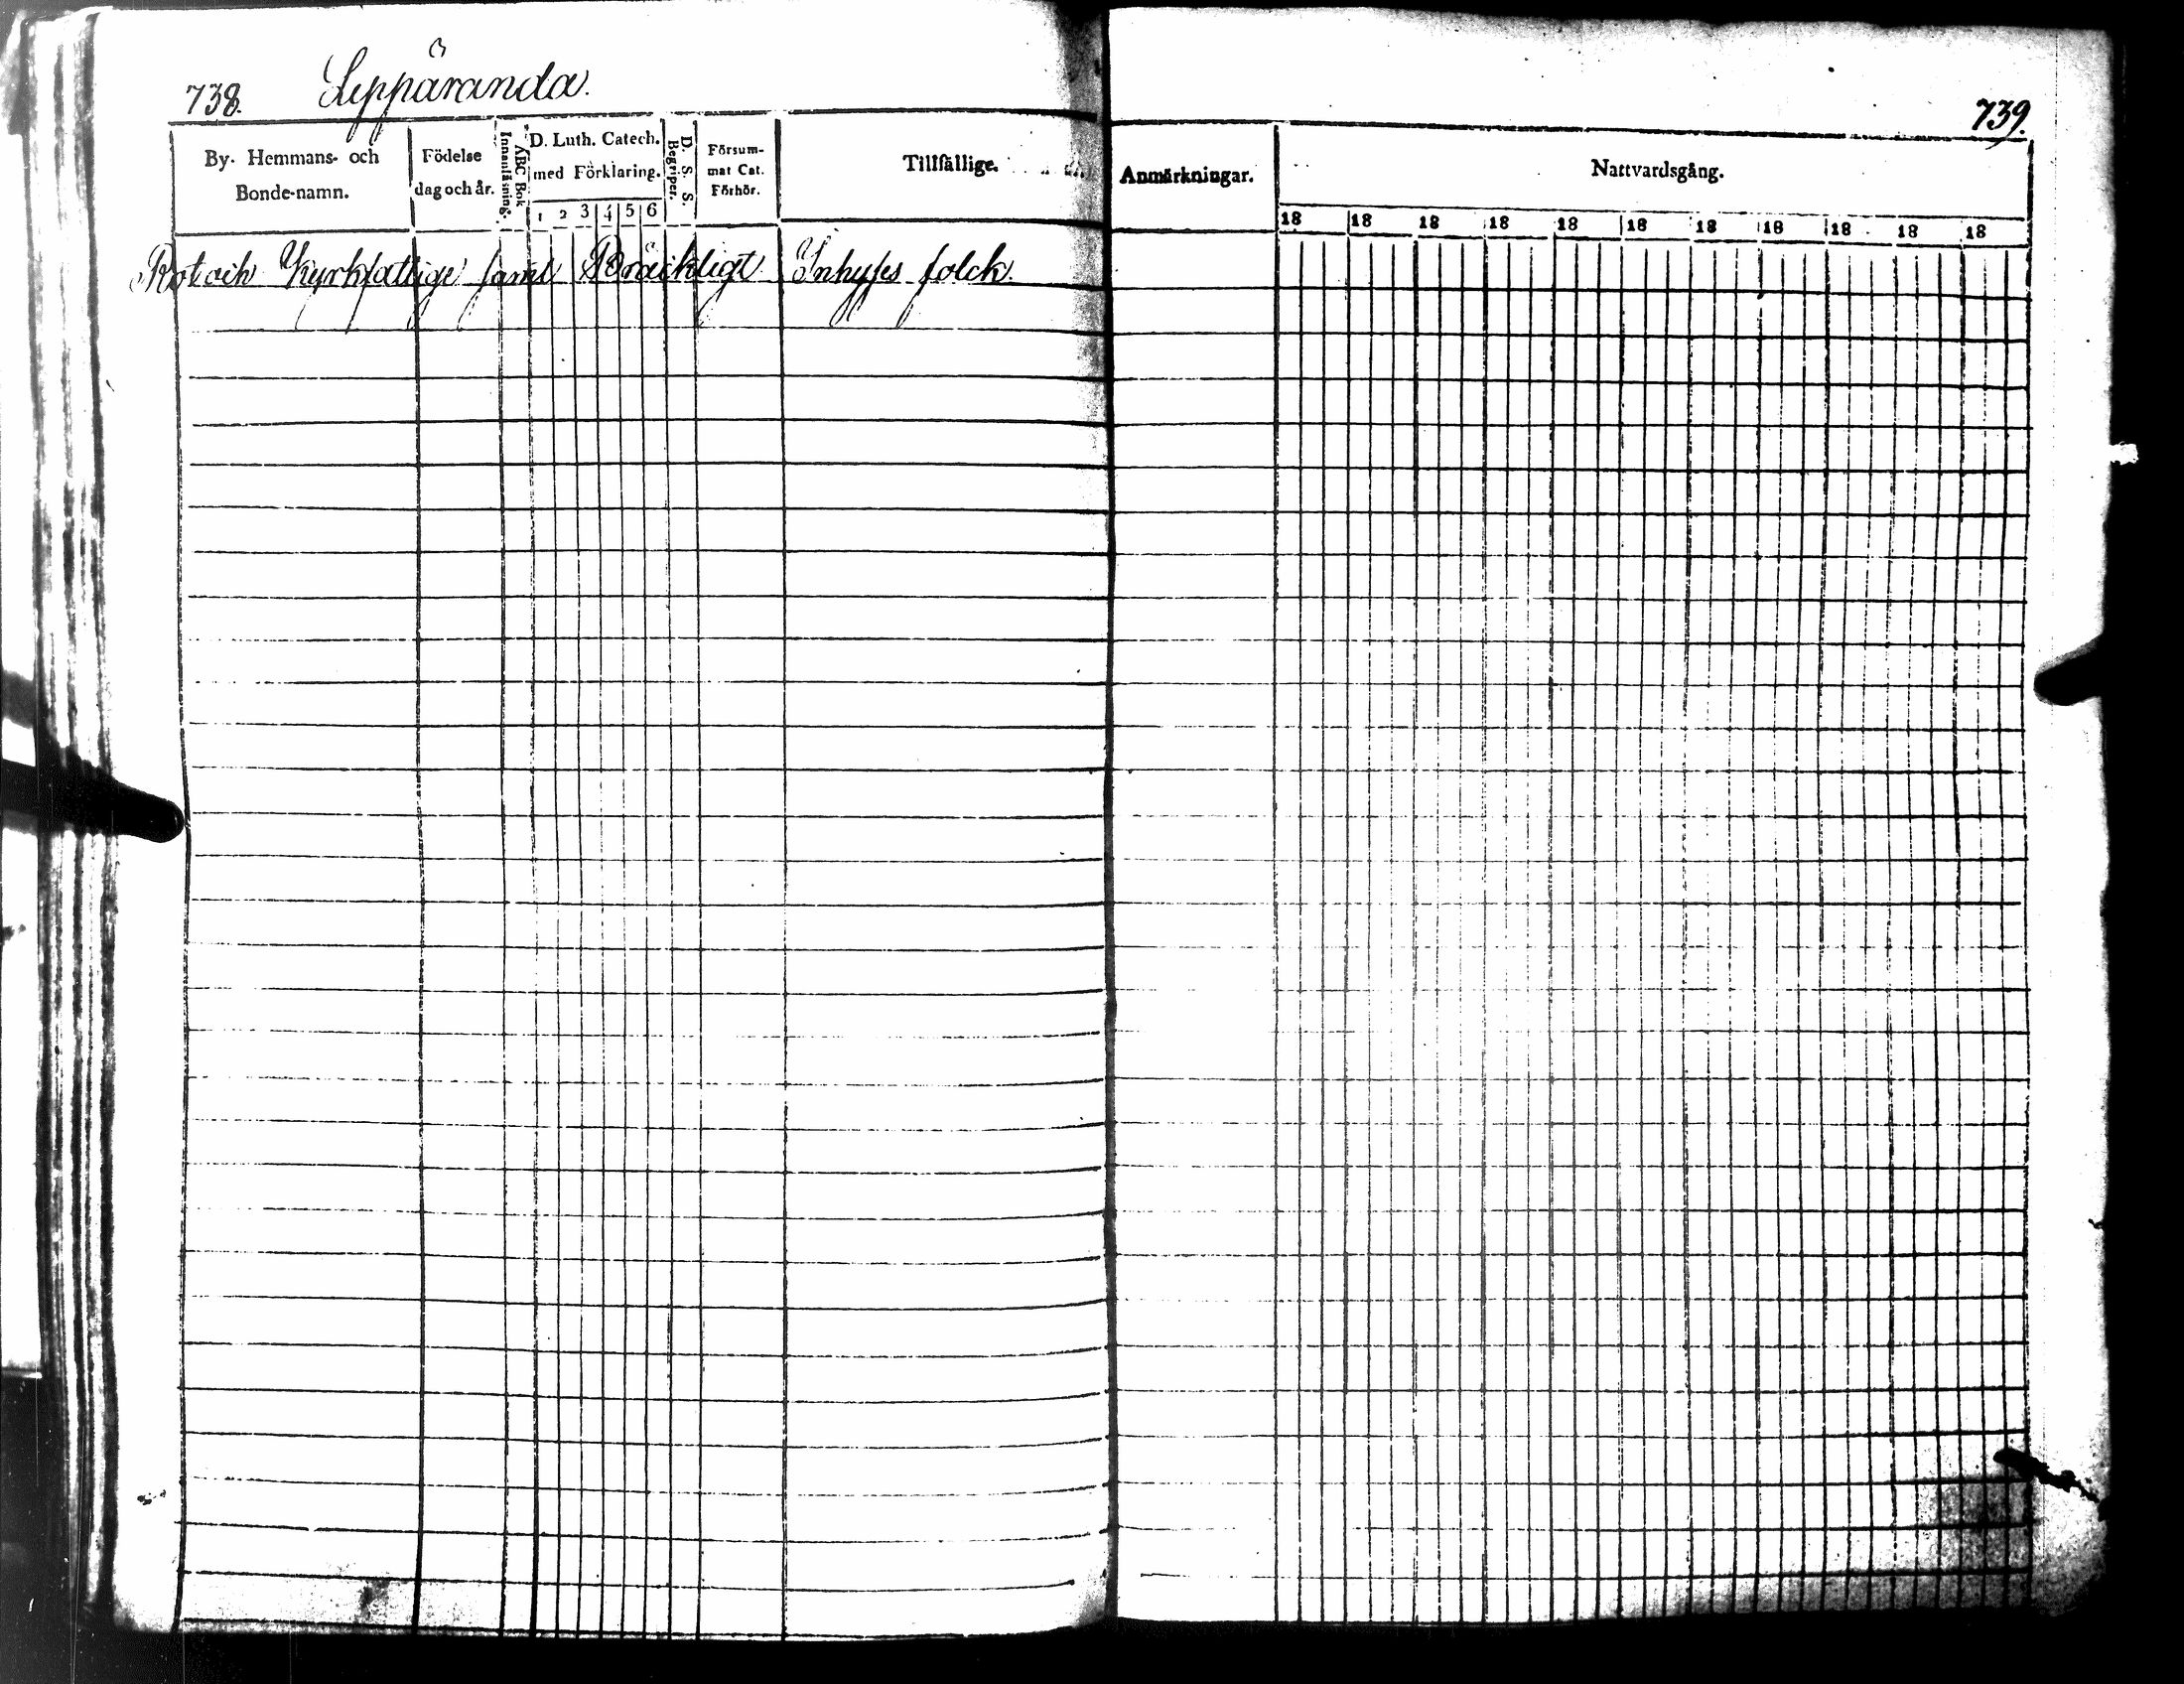 738. Leppäranda.
By- Hemmans- och
Bonde-namn.
Födelse
dag och år.
ABC Bok
Innanläsning.
D. Luth. Catech.
med Förklaring.
1 2 3 4 5 6
D. S. S.
Begriper.
Försum-
mat Cat.
Förhör.
Tillfällige
Rot och Kyrkfattige samt Bräckligt Inhyses folck.
739.
Anmärkningar.
Nattvardsgång.
18 18 18 18 18 18 18 18 18 18 18